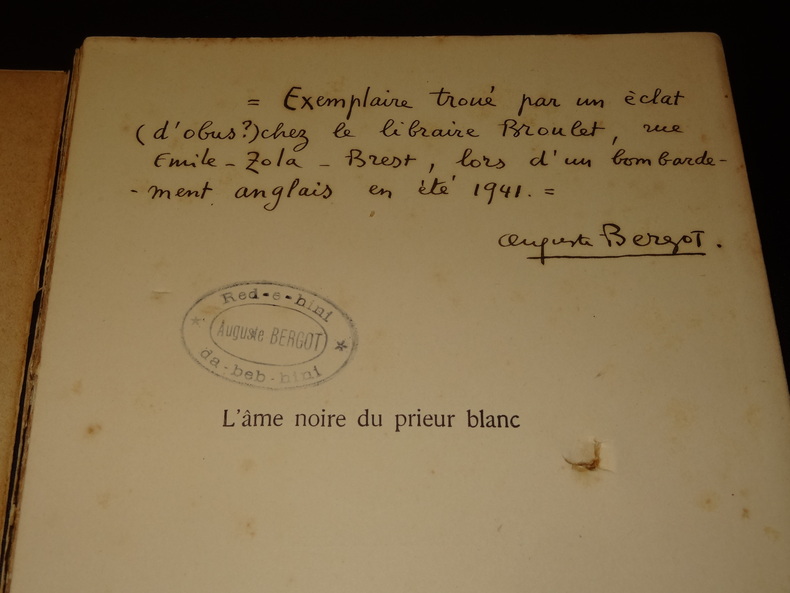 = Exemplaire troué par un èclat
(d'obus?) chez le libraire Broulet, rue
Emile-Zola-Brest, lors d'un bombarde-
-ment anglais en été 1941. =
Auguste Bergot.
Red-e-hini
Auguste BERGOT
da-beb-hini
L'âme noire du prieur blanc